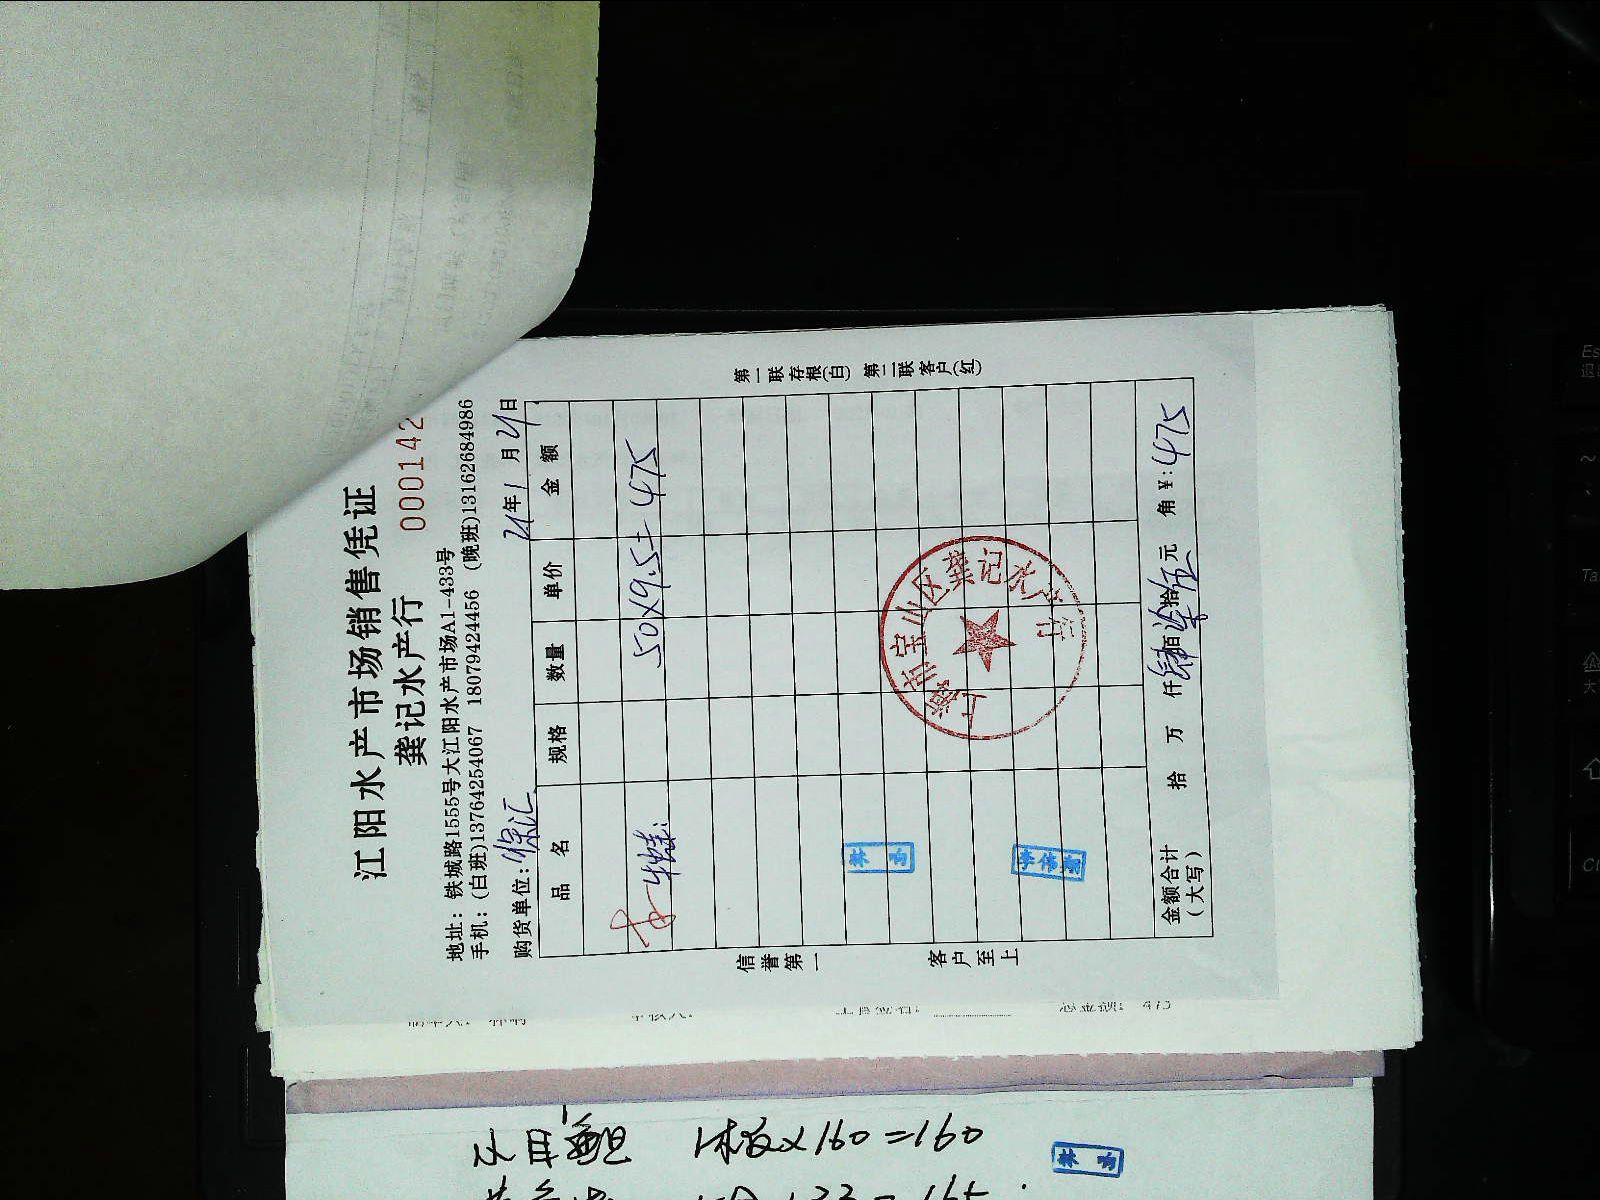 江阳水产市场销售凭证
龚记水产行 000142
地址：铁城路1555号大江阳水产市场A1-433号
手机：(白班)13764254067 18079424456 (晚班)13162684986
购货单位：徐汇 21年1月21日
品名 规格 数量 单价 金额
50×9.5=475
金额合计（大写） 拾 万 仟肆佰柒拾伍元 角 ¥：475
信誉第一 客户至上
第一联存根(白) 第二联客户(红)
上海市宝山区龚记水产行
×160=160